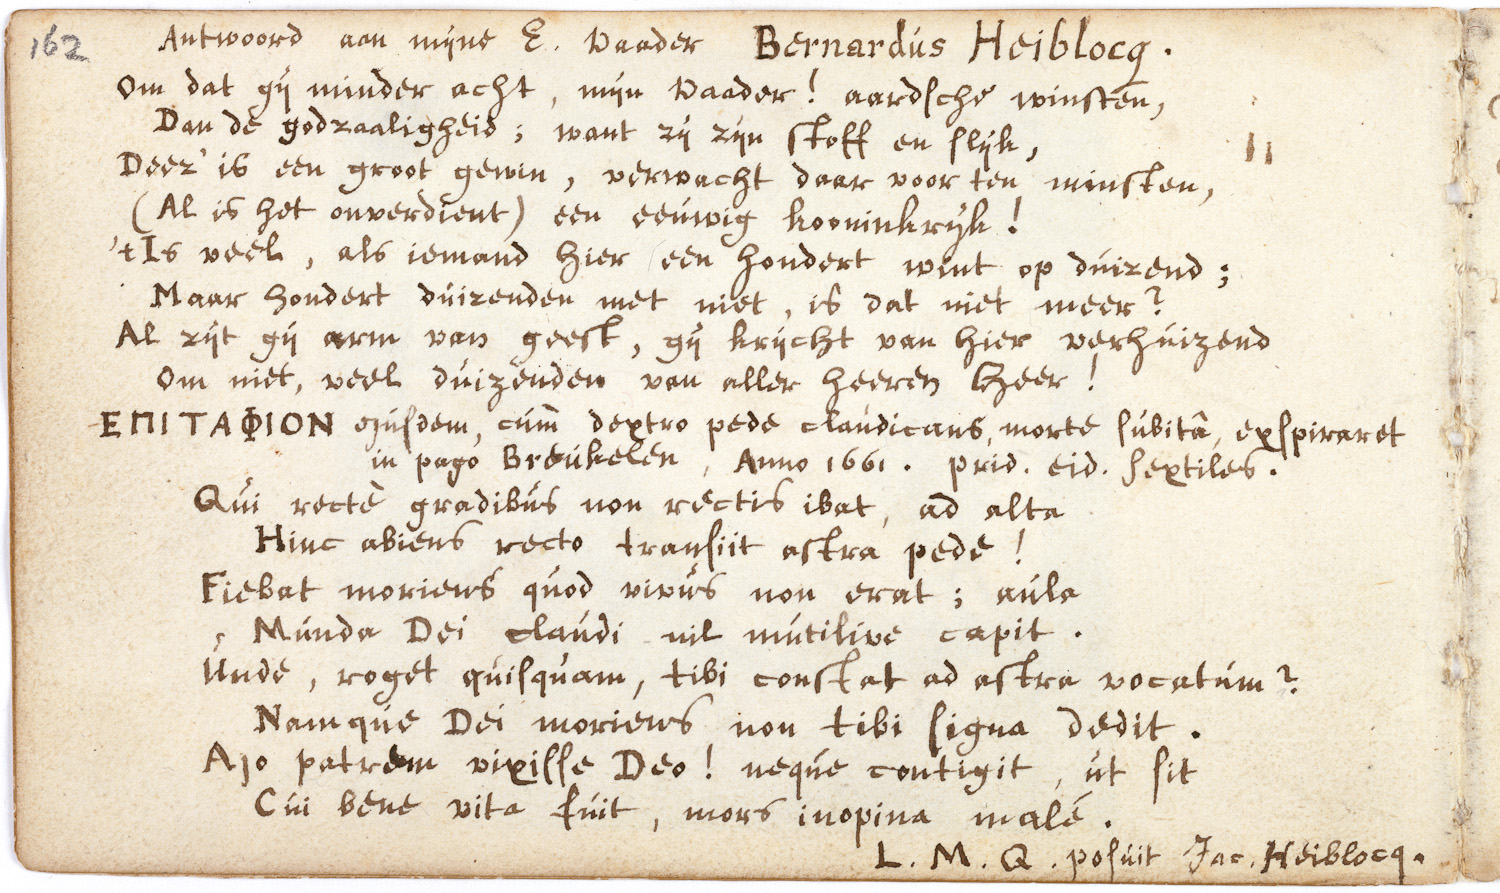 162
Antwoord aan mijne E. Vaader Bernardus Heiblocq.
Om dat gij minder acht, mijn Vaader! aardsche winsten,
Dan de godzaaligheid; want zij zijn stoff en slijk,
Deez' is een groot gewin, verwacht daar voor ten minsten,
(Al is het onverdient) een eeuwig kooninkrijk!
't Is veel, als iemand hier een hondert wint op duizend;
Maar hondert duizenden met niet, is dat niet meer?
Al zijt gij arm van geest, gij krijcht van hier verhuizend
Om niet, veel duizenden van aller heeren Heer!
ΕΠΙΤΑΦΙΟΝ ejusdem, cum dextro pede claudicans, morte subitâ, exspiraret
in pago Breukelen, Anno 1661. prid. eid. sextiles.
Qui rectè gradibus non rectis ibat, ad alta
Hinc abiens recto transiit astra pede!
Fiebat moriens quod vivus non erat; aula
Munda Dei claudi nil mutilive capit.
Unde, roget quisquam, tibi constat ad astra vocatum?
Namque Dei moriens non tibi signa dedit.
Ajo patrem vixisse Deo! neque contigit, ut sit
Cui bene vita fuit, mors inopina malè.
L. M. Q. posuit Jac. Heiblocq.